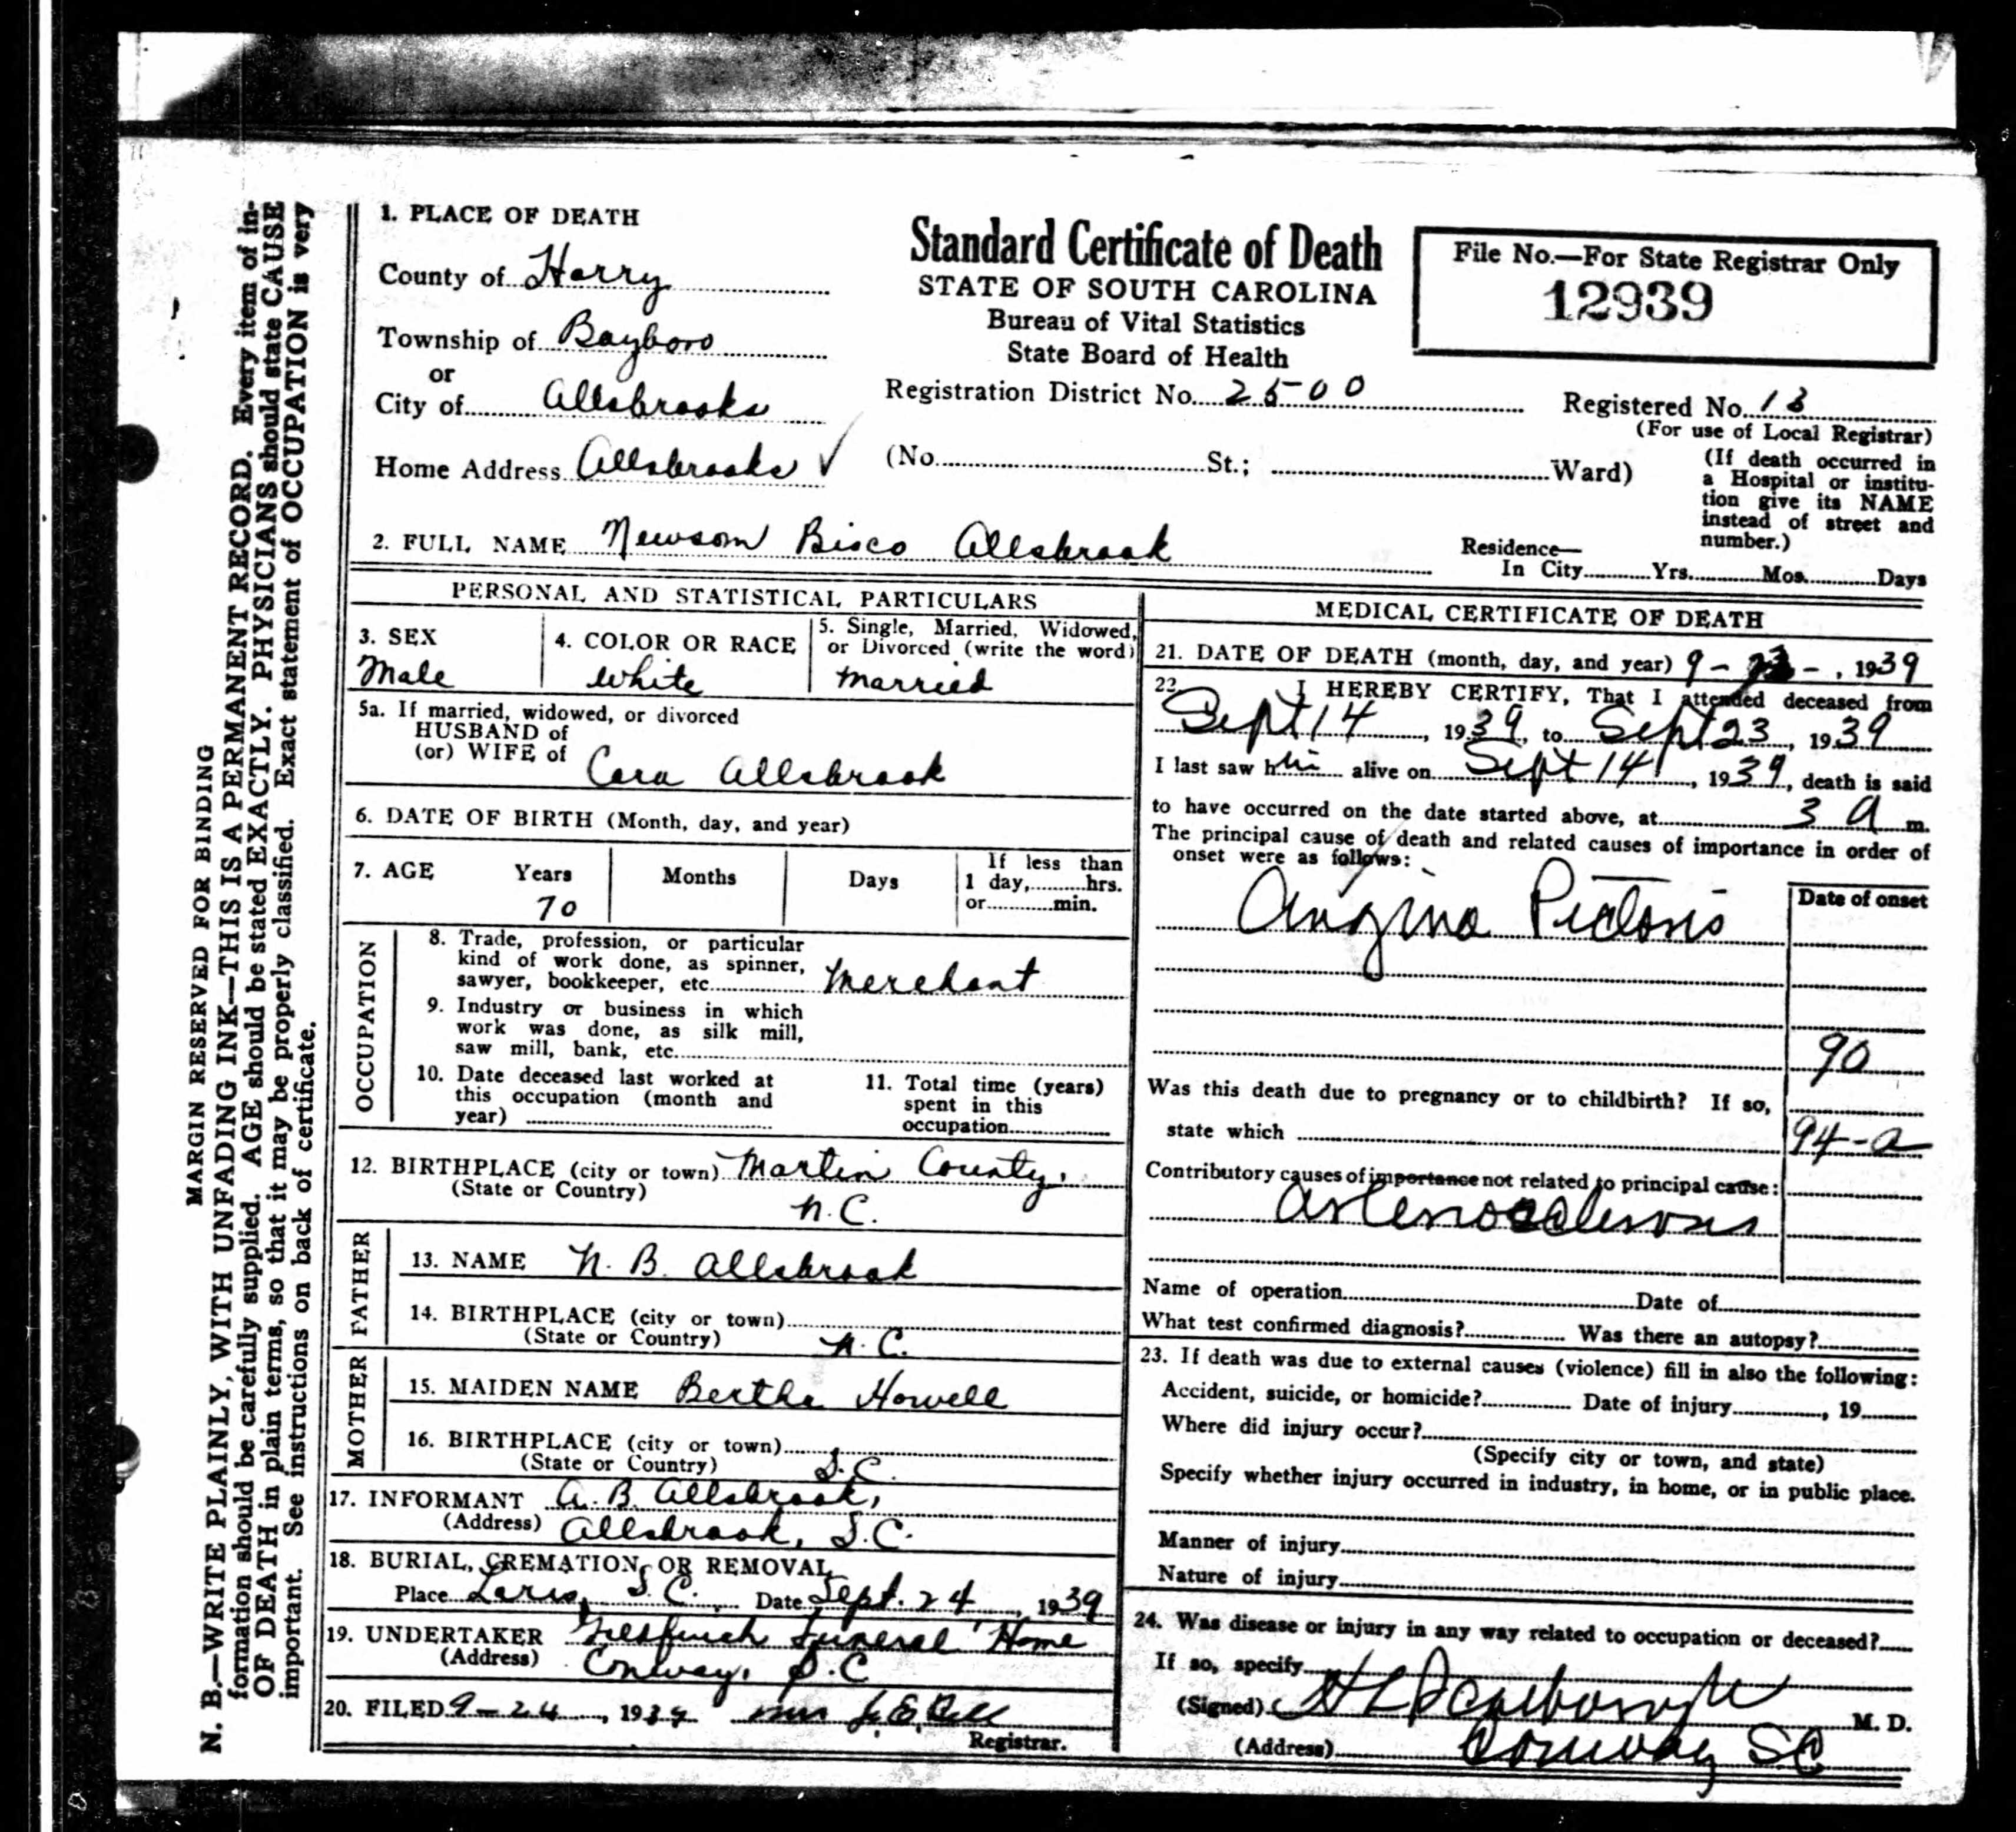 1. PLACE OF DEATH
County of Horry
Township of Bayboro
or
City of Allsbrooks
Home Address Allsbrooks ✓
Standard Certificate of Death
STATE OF SOUTH CAROLINA
Bureau of Vital Statistics
State Board of Health
File No.—For State Registrar Only
12939
Registration District No. 2500
Registered No. 13
(For use of Local Registrar)
(No. St.; Ward)
(If death occurred in
a Hospital or institu-
tion give its NAME
instead of street and
number.)
2. FULL NAME Newsom Bisco Allsbrook
Residence—
In City Yrs. Mos. Days
PERSONAL AND STATISTICAL PARTICULARS
3. SEX
Male
4. COLOR OR RACE
White
5. Single, Married, Widowed,
or Divorced (write the word)
Married
5a. If married, widowed, or divorced
HUSBAND of
(or) WIFE of Cora Allsbrook
6. DATE OF BIRTH (Month, day, and year)
7. AGE Years Months Days
70
If less than
1 day, hrs.
or min.
OCCUPATION
8. Trade, profession, or particular
kind of work done, as spinner,
sawyer, bookkeeper, etc. Merchant
9. Industry or business in which
work was done, as silk mill,
saw mill, bank, etc.
10. Date deceased last worked at
this occupation (month and
year)
11. Total time (years)
spent in this
occupation
12. BIRTHPLACE (city or town) Martin County,
(State or Country) N.C.
FATHER
13. NAME N. B. Allsbrook
14. BIRTHPLACE (city or town)
(State or Country) N.C.
MOTHER
15. MAIDEN NAME Bertha Howell
16. BIRTHPLACE (city or town)
(State or Country) S.C.
17. INFORMANT A. B. Allsbrook,
(Address) Allsbrook, S.C.
18. BURIAL, CREMATION, OR REMOVAL
Place Loris, S.C. Date Sept. 24, 1939
19. UNDERTAKER Funeral Home
(Address) Conway, S.C
20. FILED 9-24, 1939 Mrs Bell
Registrar.
MEDICAL CERTIFICATE OF DEATH
21. DATE OF DEATH (month, day, and year) 9-23-, 1939
22. I HEREBY CERTIFY, That I attended deceased from
Sept 14, 1939, to Sept 23, 1939
I last saw him alive on Sept 14, 1939, death is said
to have occurred on the date started above, at 3 a m.
The principal cause of death and related causes of importance in order of
onset were as follows:
Date of onset
Angina Pectoris
90
Was this death due to pregnancy or to childbirth? If so,
state which
94-a
Contributory causes of importance not related to principal cause:
Arteriosclerosis
Name of operation Date of
What test confirmed diagnosis? Was there an autopsy?
23. If death was due to external causes (violence) fill in also the following:
Accident, suicide, or homicide? Date of injury, 19
Where did injury occur?
(Specify city or town, and state)
Specify whether injury occurred in industry, in home, or in public place.
Manner of injury
Nature of injury
24. Was disease or injury in any way related to occupation or deceased?
If so, specify
(Signed) H L Scarborough M. D.
(Address) Conway SC
MARGIN RESERVED FOR BINDING
N. B.—WRITE PLAINLY, WITH UNFADING INK—THIS IS A PERMANENT RECORD. Every item of in-
formation should be carefully supplied. AGE should be stated EXACTLY. PHYSICIANS should state CAUSE
OF DEATH in plain terms, so that it may be properly classified. Exact statement of OCCUPATION is very
important. See instructions on back of certificate.